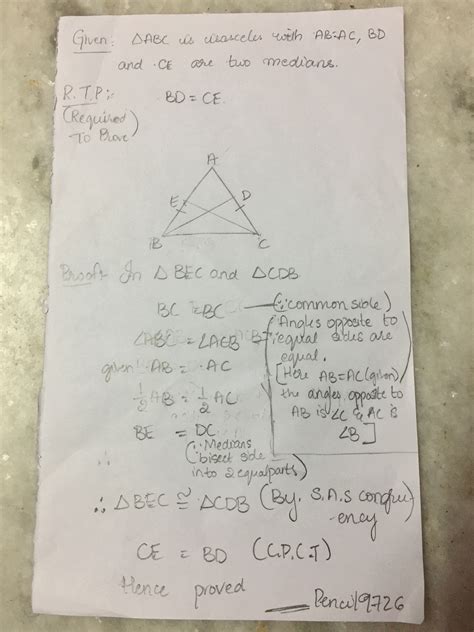 Given: △ABC is isosceles with AB=AC, BD
and CE are two medians.
R.T.P:- BD = CE
(Required
To Prove)
A
E D
B C
Proof:- In △ BEC and △CDB
BC = BC (∵ common side)
∠ABC = ∠ACB
(Angles opposite to
equal sides are
equal.
[Here AB=AC (given)
the angles opposite to
AB is ∠C & AC is
∠B]
given AB = AC
1/2 AB = 1/2 AC
BE = DC
(∵ Medians
bisect side
into 2 equal parts)
∴
∴ △BEC ≅ △CDB (By S.A.S congru-
ency)
CE = BD (C.P.C.T)
Hence proved
Pencil9726